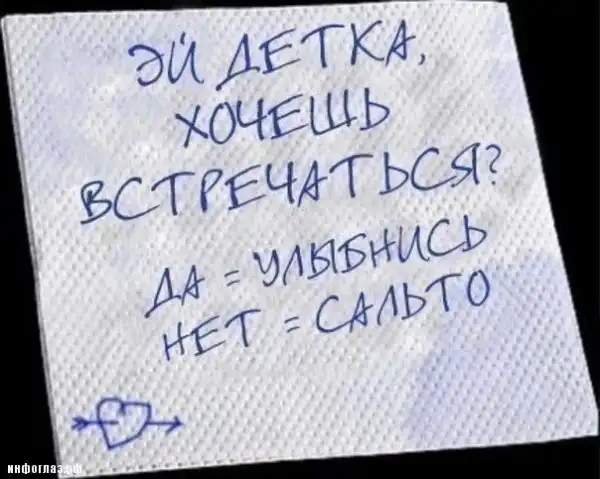 ЭЙ ДЕТКА,
ХОЧЕШЬ
ВСТРЕЧАТЬСЯ?
ДА = УЛЫБНИСЬ
НЕТ = САЛЬТО
инфоглаз.рф